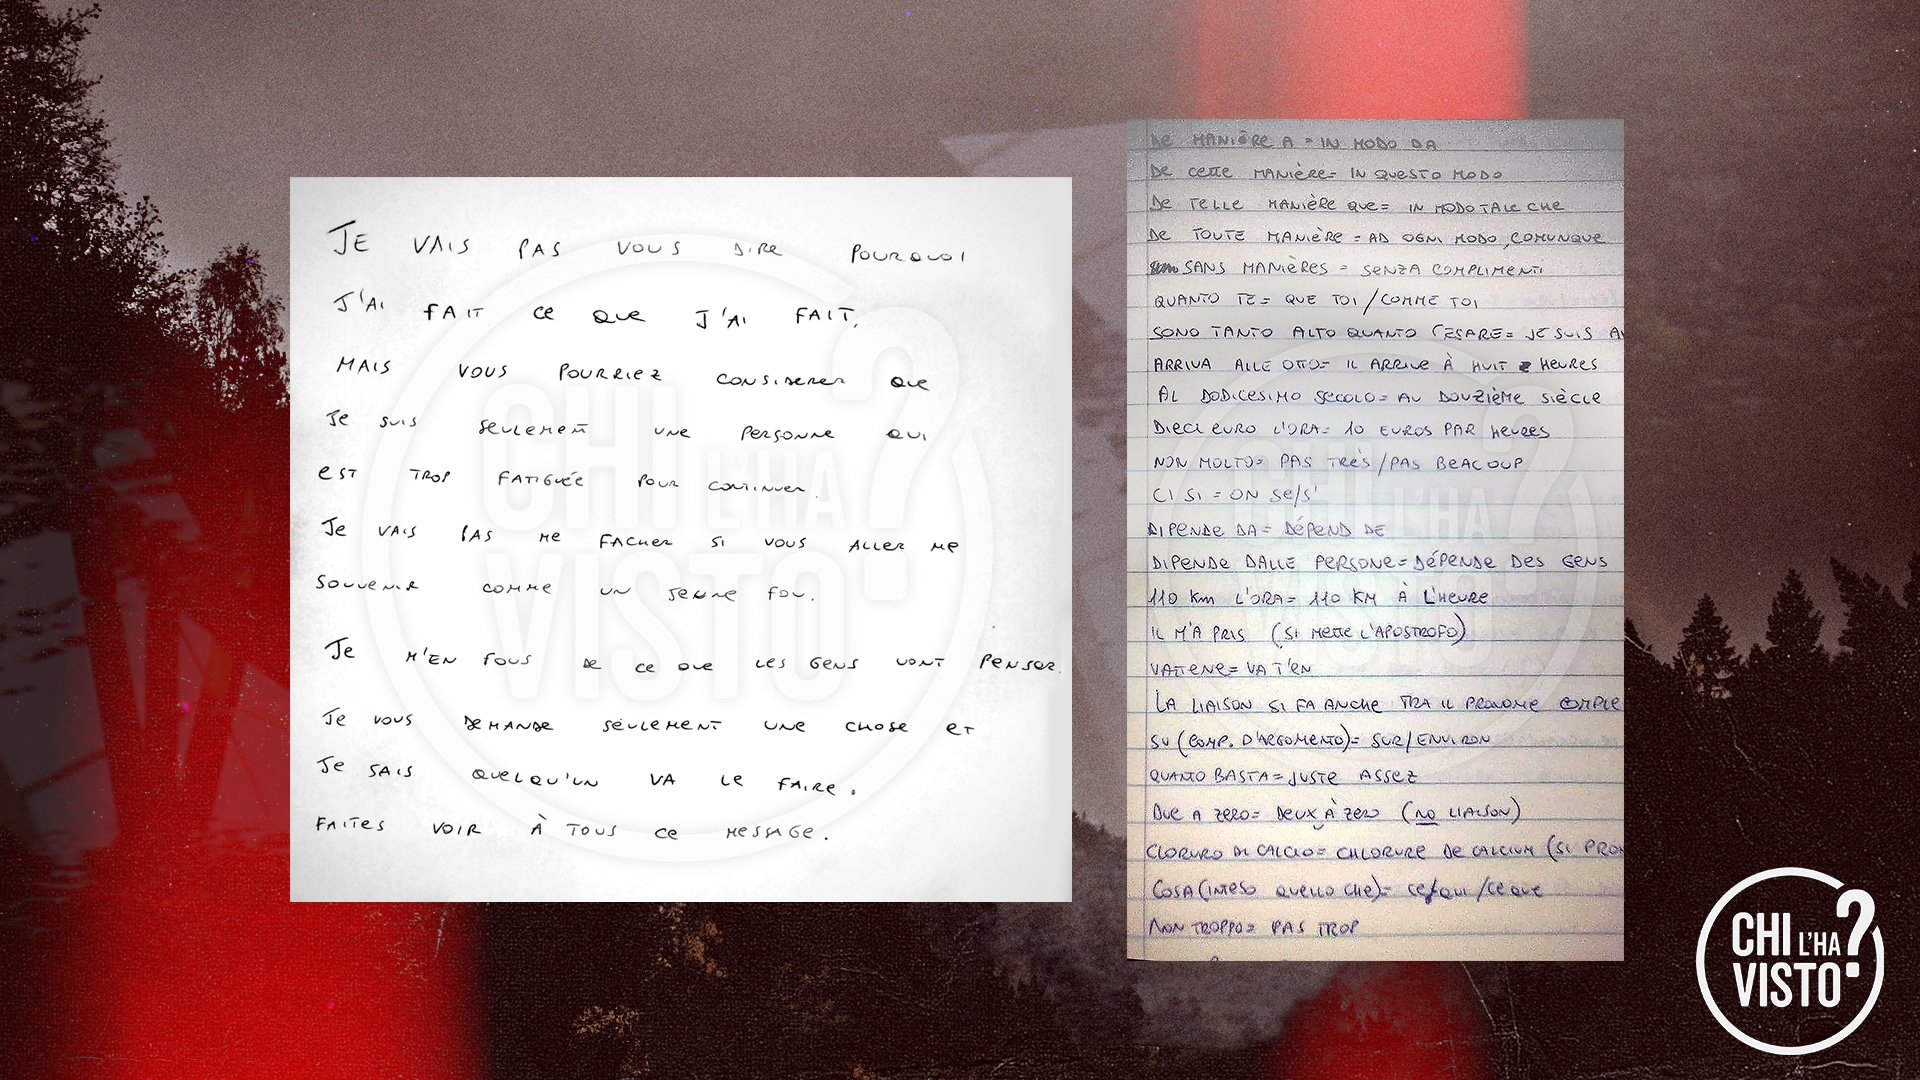 JE VAIS PAS VOUS DIRE POURQUOI
J'AI FAIT CE QUE J'AI FAIT,
MAIS VOUS POURRIEZ CONSIDERER QUE
JE SUIS SEULEMENT UNE PERSONNE QUI
EST TROP FATIGUÉE POUR CONTINUER.
JE VAIS PAS ME FACHER SI VOUS ALLER ME
SOUVENIR COMME UN JEUNE FOU.
JE M'EN FOUS DE CE QUE LES GENS VONT PENSER.
JE VOUS DEMANDE SEULEMENT UNE CHOSE ET
JE SAIS QUELQU'UN VA LE FAIRE.
FAITES VOIR À TOUS CE MESSAGE.
DE MANIÈRE A = IN MODO DA
DE CETTE MANIÈRE = IN QUESTO MODO
DE TELLE MANIÈRE QUE = IN MODO TALE CHE
DE TOUTE MANIÈRE = AD OGNI MODO, COMUNQUE
SANS MANIÈRES = SENZA COMPLIMENTI
QUANTO TE = QUE TOI / COMME TOI
SONO TANTO ALTO QUANTO CESARE = JE SUIS AU
ARRIVA ALLE OTTO = IL ARRIVE À HUIT HEURES
AL DODICESIMO SECOLO = AU DOUZIÈME SIÈCLE
DIECI EURO L'ORA = 10 EUROS PAR HEURES
NON MOLTO = PAS TRÈS / PAS BEACOUP
CI SI = ON SE/S'
DIPENDE DA = DÉPEND DE
DIPENDE DALLE PERSONE = DÉPENDE DES GENS
110 KM L'ORA = 110 KM À L'HEURE
IL M'A PRIS (SI METTE L'APOSTROFO)
VATTENE = VA T'EN
LA LIAISON SI FA ANCHE TRA IL PRONOME COMPLE
SU (COMP. D'ARGOMENTO) = SUR / ENVIRON
QUANTO BASTA = JUSTE ASSEZ
DUE A ZERO = DEUX À ZERO (NO LIAISON)
CLORURO DI CALCIO = CHLORURE DE CALCIUM (SI PRON
COSA (INTESO QUELLO CHE) = CE QUI / CE QUE
NON TROPPO = PAS TROP
CHI L'HA VISTO?